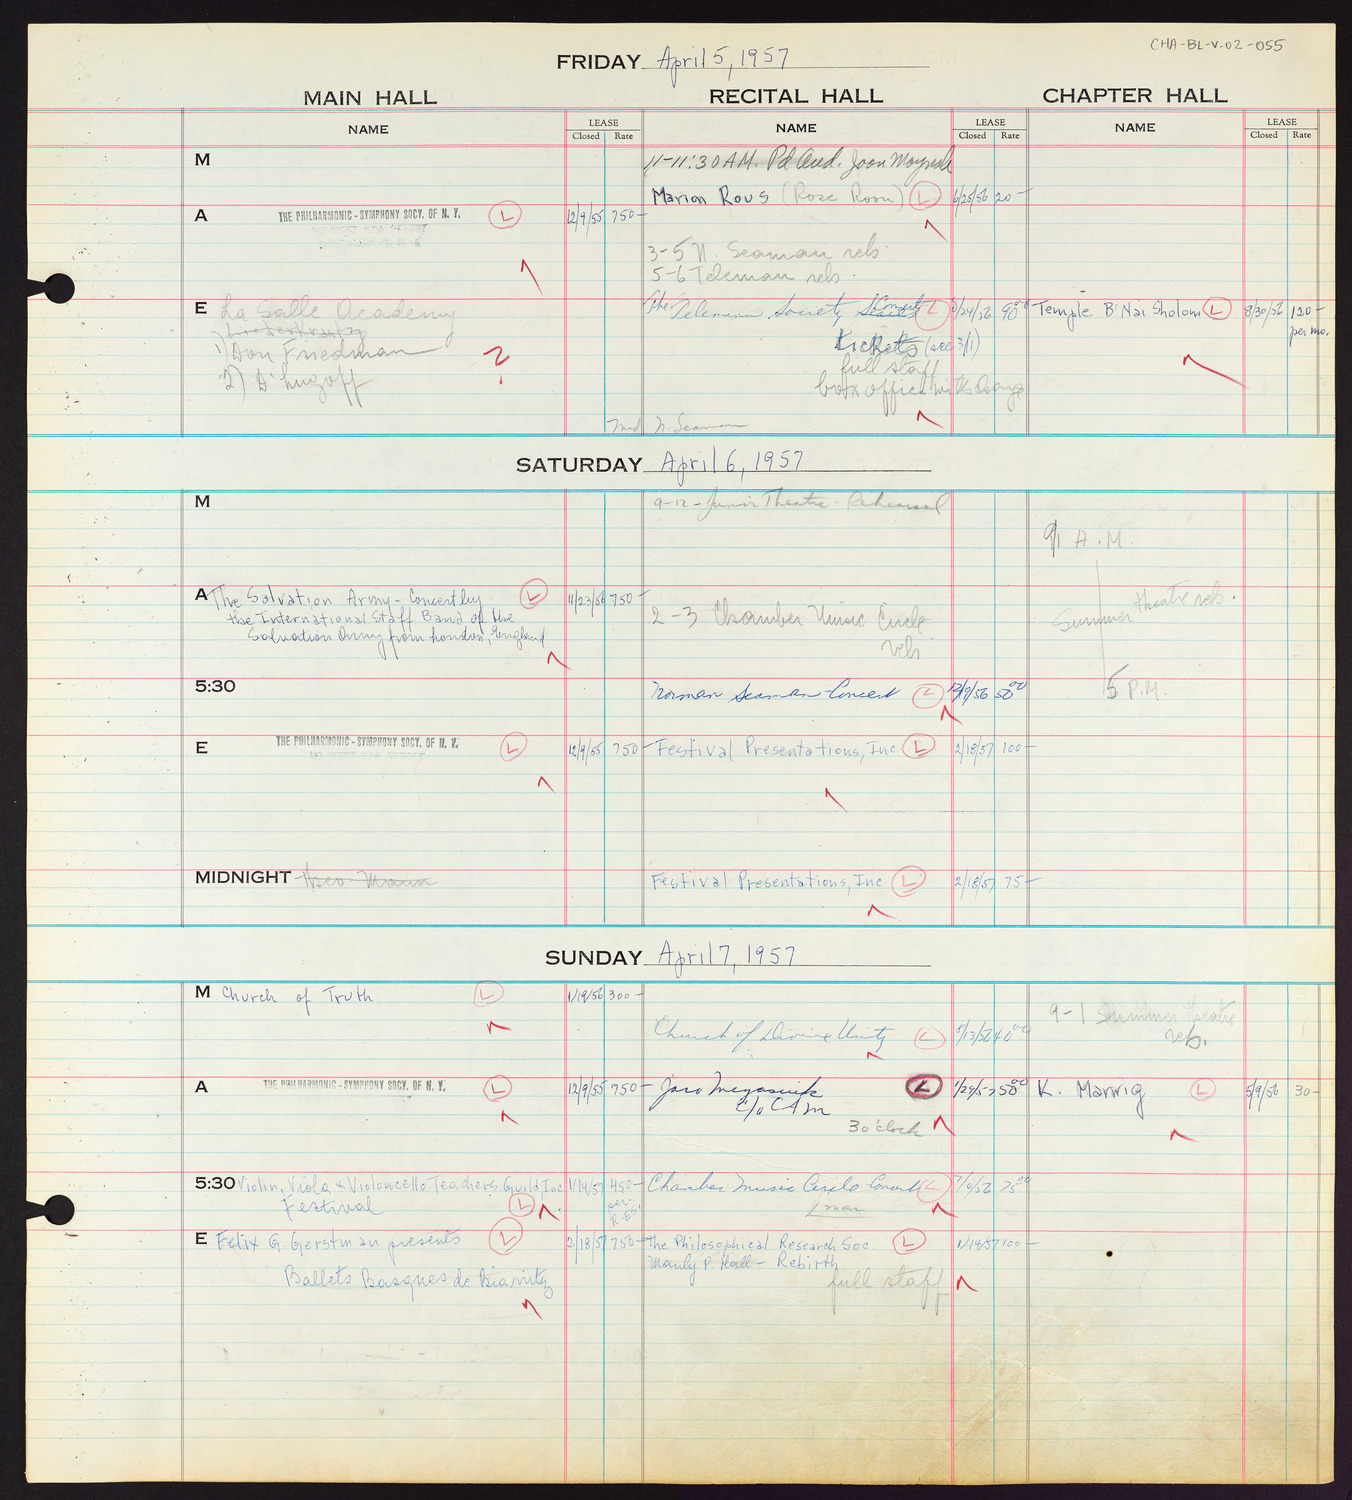 CHA-BL-V.02-055
FRIDAY April 5, 1957
MAIN HALL RECITAL HALL CHAPTER HALL
NAME LEASE Closed Rate NAME LEASE Closed Rate NAME LEASE Closed Rate
M
11-11:30 A.M. Pd Aud. Joan
Marion Rous (Rose Room) L 6/25/56 20-
A THE PHILHARMONIC-SYMPHONY SOCY. OF N. Y. L 12/9/55 750-
3-5 N. Seaman reh.
5-6 Teleman reh.
E La Salle Academy
The Telemann Society L 8/24/56 90.00
Temple B'Nai Sholom L 8/30/56 120- per mo.
Liederkrantz
1) Don Friedman
2) D'Lugoff
?
tickets (see 3/1)
full staff
box office
N. Seaman
SATURDAY April 6, 1957
M 9-12 - Junior Theatre - Rehearsal
9 A.M.
Summer theatre reh.
5 P.M.
A The Salvation Army - Concert by L 11/23/56 750-
the International Staff Band of the
Salvation Army from London, England
2-3 Chamber Music Circle
reh
5:30 Norman Seaman-Concert L 12/9/56 50.00
E THE PHILHARMONIC-SYMPHONY SOCY. OF N. Y. L 12/9/55 750- Festival Presentations, Inc L 2/18/57 100-
MIDNIGHT Theo. Mann Festival Presentations, Inc L 2/18/57 75-
SUNDAY April 7, 1957
M Church of Truth L 1/19/56 300-
9-1 Summer theatre
reh.
Church of Divine Unity L 8/13/56 40.00
A THE PHILHARMONIC-SYMPHONY SOCY. OF N. Y. L 12/9/55 750- L 1/29/57 50.00 K. Marwig L 5/9/56 30-
c/o CAm
3 o'clock
5:30 Violin, Viola & Violoncello Teachers Guild, Inc 1/14/57 450- per R. ES. Chamber Music Circle Concert L 75.00
Festival L
E Felix G. Gerstman presents L 2/18/57 750- The Philosophical Research Soc. L 1/14/57 100-
Manly P. Hall - Rebirth
Ballets Basques de Biarritz
full staff